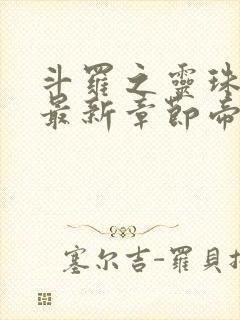 斗羅之靈珠
最新章節帝
塞尔吉-羅貝扎